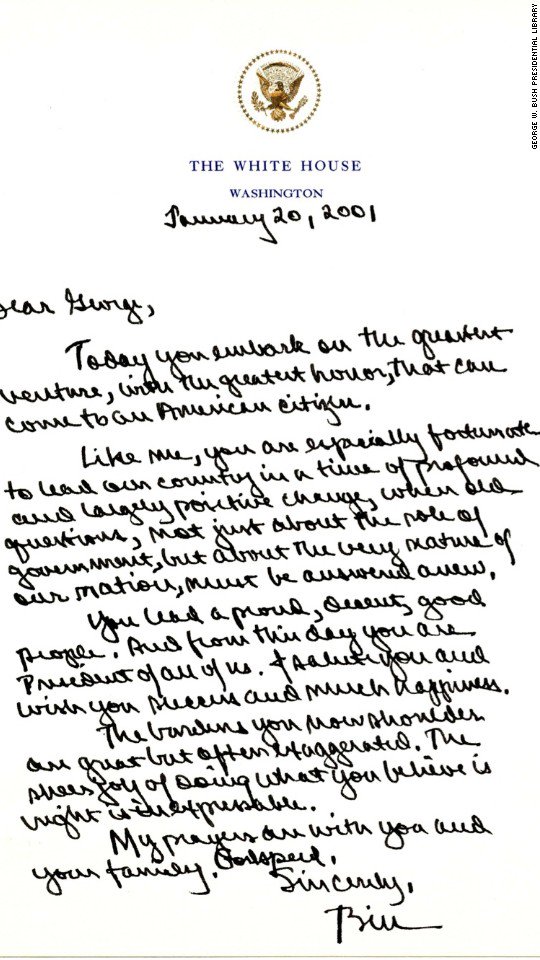 GEORGE W. BUSH PRESIDENTIAL LIBRARY
THE WHITE HOUSE
WASHINGTON
January 20, 2001
Dear George,
Today you embark on the greatest
venture, with the greatest honor, that can
come to an American citizen.
Like me, you are especially fortunate
to lead our country in a time of profound
and largely positive change, when old
questions, not just about the role of
government, but about the very nature of
our nation, must be answered anew.
You lead a proud, decent, good
people. And from this day you are
President of all of us. I salute you and
wish you success and much happiness.
The burdens you now shoulder
are great but often exaggerated. The
sheer joy of doing what you believe is
right is inexpressible.
My prayers are with you and
your family. Godspeed.
Sincerely,
Bill